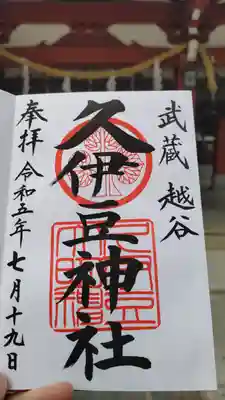 武蔵 越谷
久伊豆神社
奉拝 令和五年 七月十九日